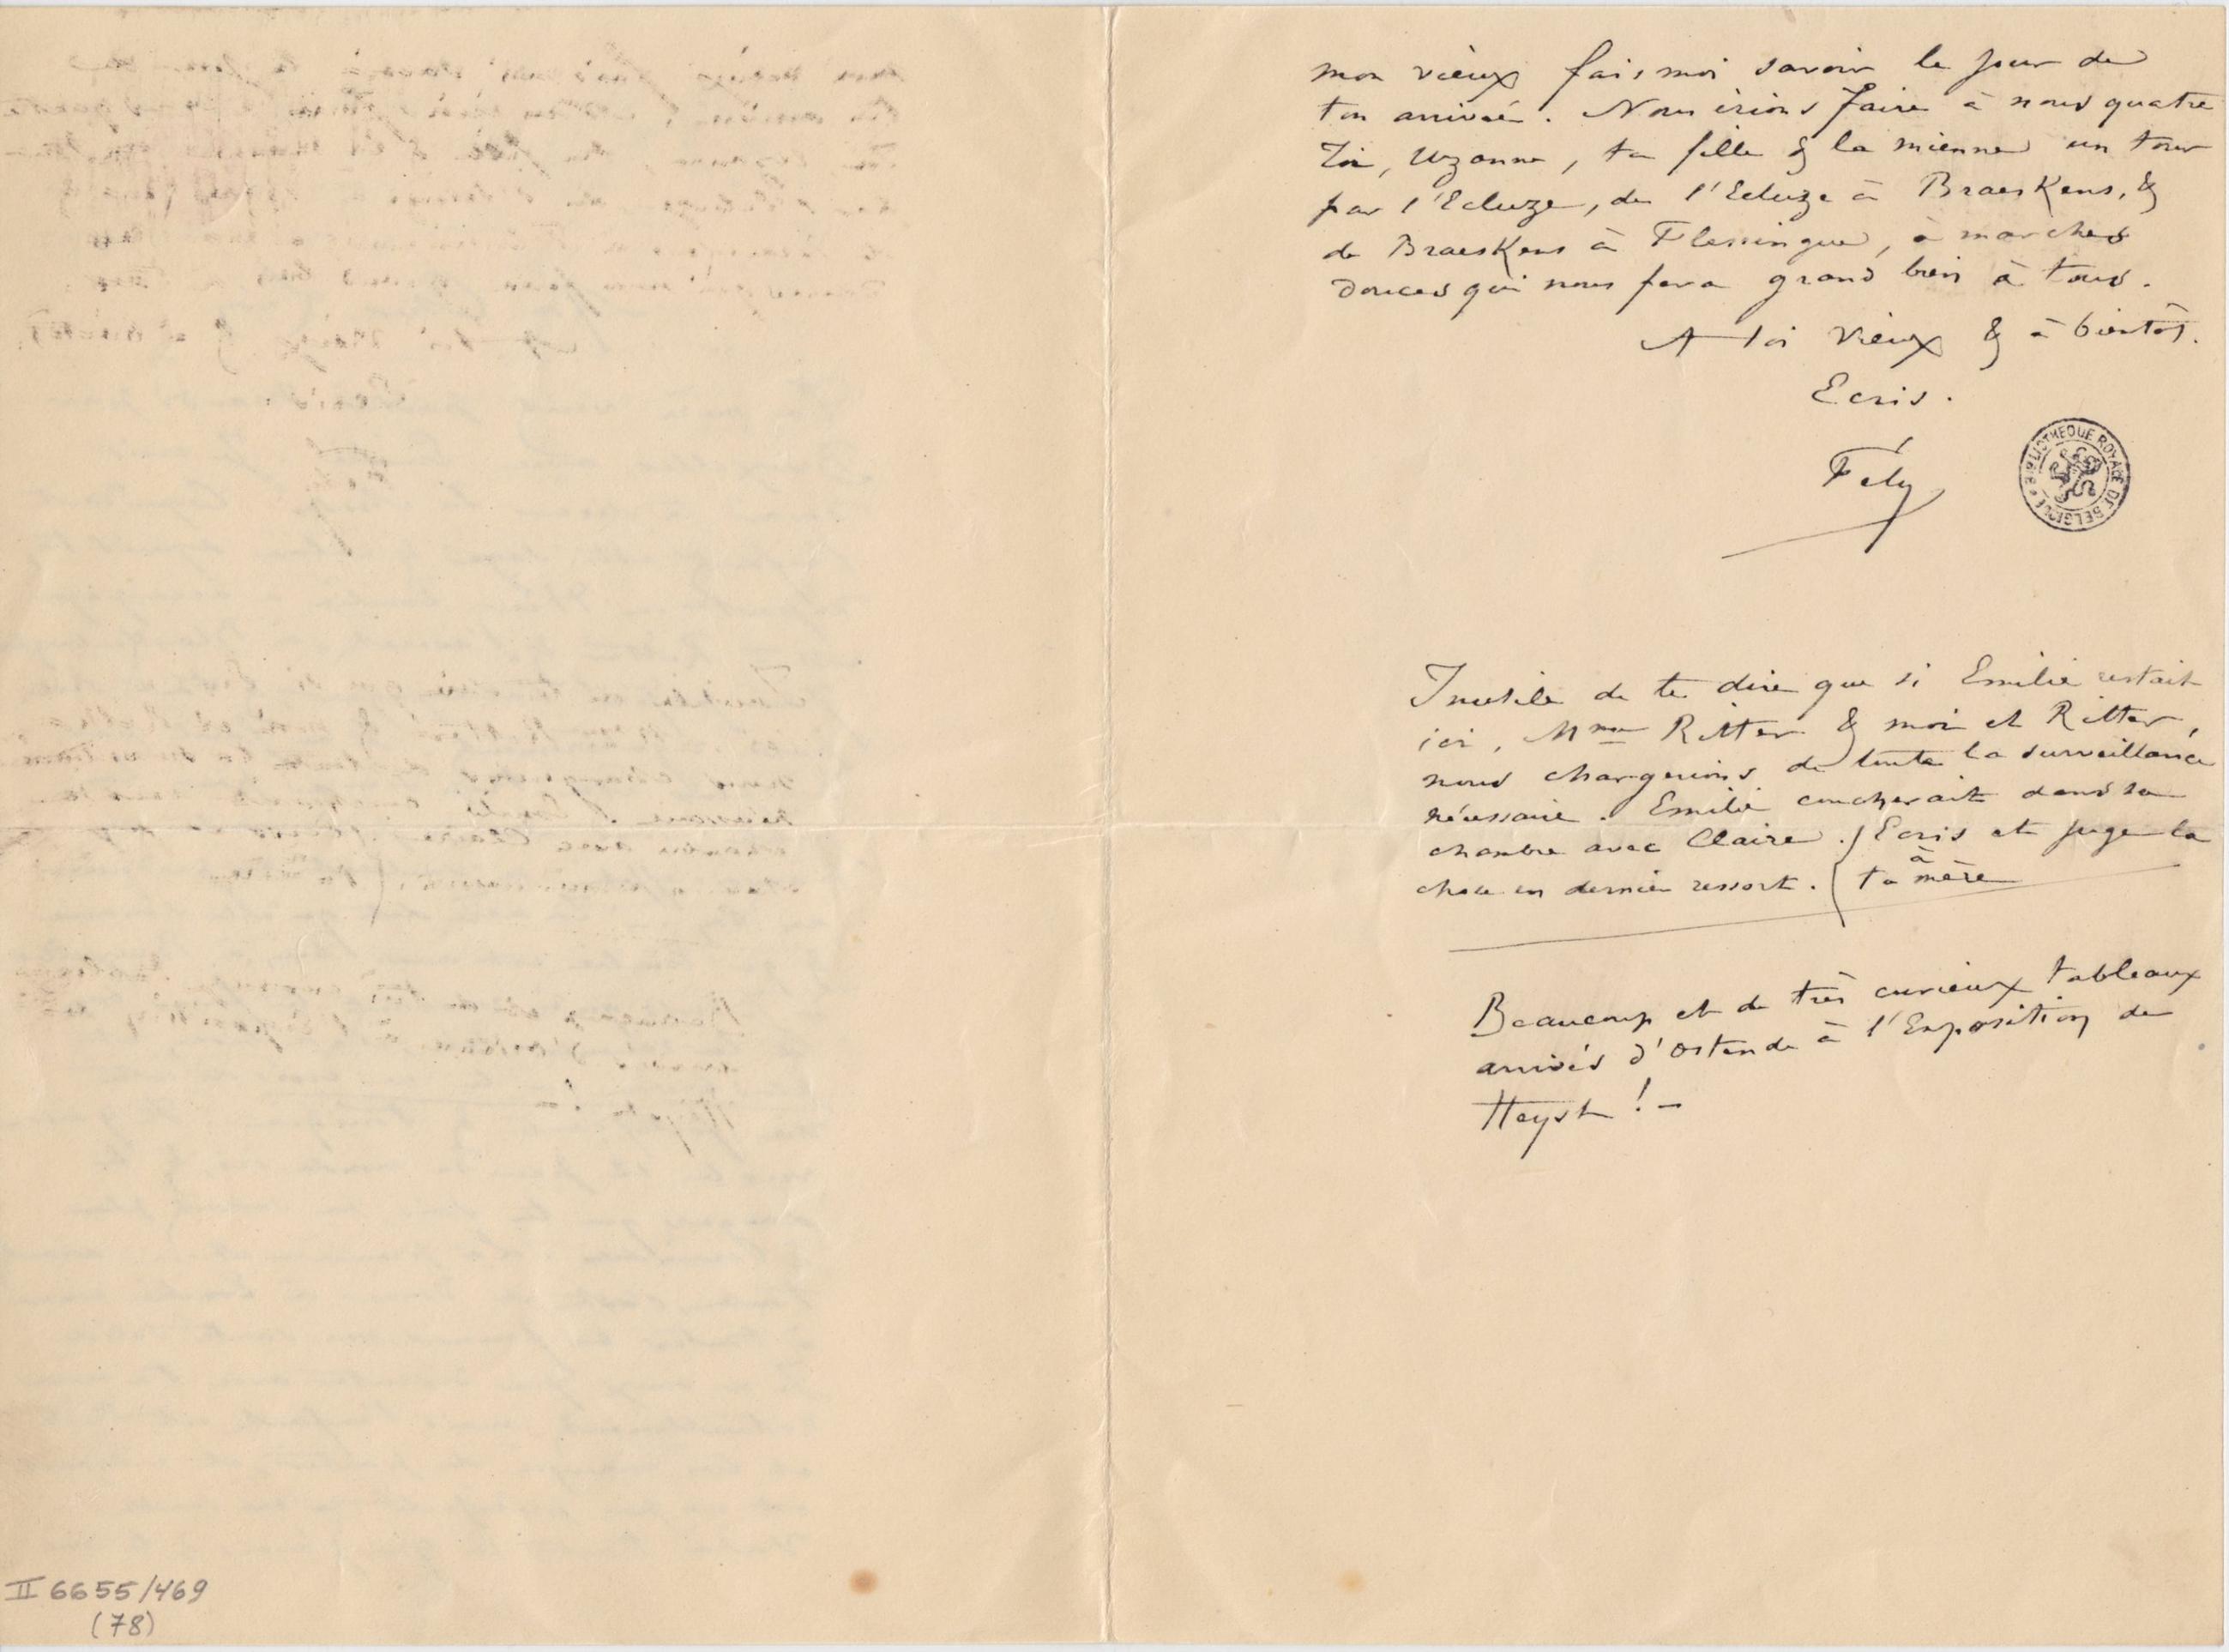 mon vieux fais moi savoir le jour de
ton arrivée. Nous irions faire à nous quatre
Toi, Uzanne, ta fille & la mienne un tour
par l'Ecluze, de l'Ecluze à BraesKens, &
de BraesKens à Flessingue, à marches
douces qui nous fera grand bien à tous.
A toi vieux & à bientôt.
Ecris.
Fély
BIBLIOTHEQUE ROYALE DE BELGIQUE
Inutile de te dire que si Emilie restait
ici, Mme Ritter & moi et Ritter,
nous chargerions de toute la surveillance
nécessaire. Emilie coucherait dans sa
chambre avec Claire. / Ecris et juge la
chose en dernier ressort. ( à ta mère
Beaucoup et de très curieux tableaux
arrivés d'Ostende à l'Exposition de
Heyst ! –
II 6655/469
(78)